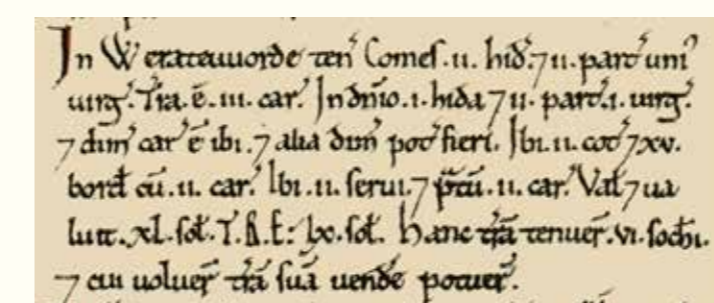 In Werateuuorde teñ Comes .ii. hiđ. ⁊ ii. part̃ uni᾽
uirg̃. Tr̃a. ẽ. iii. car̃. In dñio .i. hida ⁊ ii. part̃ .i. uirg̃.
⁊ dim̃ car̃ ẽ ibi. ⁊ alia dim̃ pot̃ fieri. Ibi .ii. cot̃ ⁊ xv.
borđ cũ .ii. car̃. Ibi .ii. serui. ⁊ p̃tũ .ii. car̃. Val̃ ⁊ ua
luit .xl. sol̃. T.R.E: lx. sol̃. Hanc tr̃a tenuer̃ .vi. sochi.
⁊ cui uoluer̃ tr̃a suã uende potuer̃.